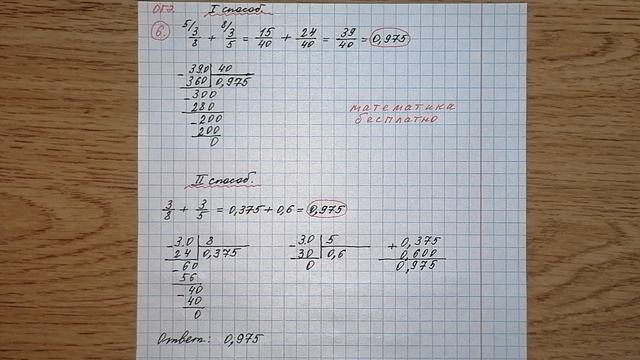 ОГЭ I способ.
6. 5/ 3/8 + 8/ 3/5 = 15/40 + 24/40 = 39/40 = 0,975
- 39.0 | 40
360 | 0,975
- 300
280
- 200
200
0
математика
бесплатно
II способ.
3/8 + 3/5 = 0,375 + 0,6 = 0,975
- 3.0 | 8
24 | 0,375
- 60
56
- 40
40
0
- 3.0 | 5
30 | 0,6
0
+ 0,375
0,600
0,975
Ответ: 0,975